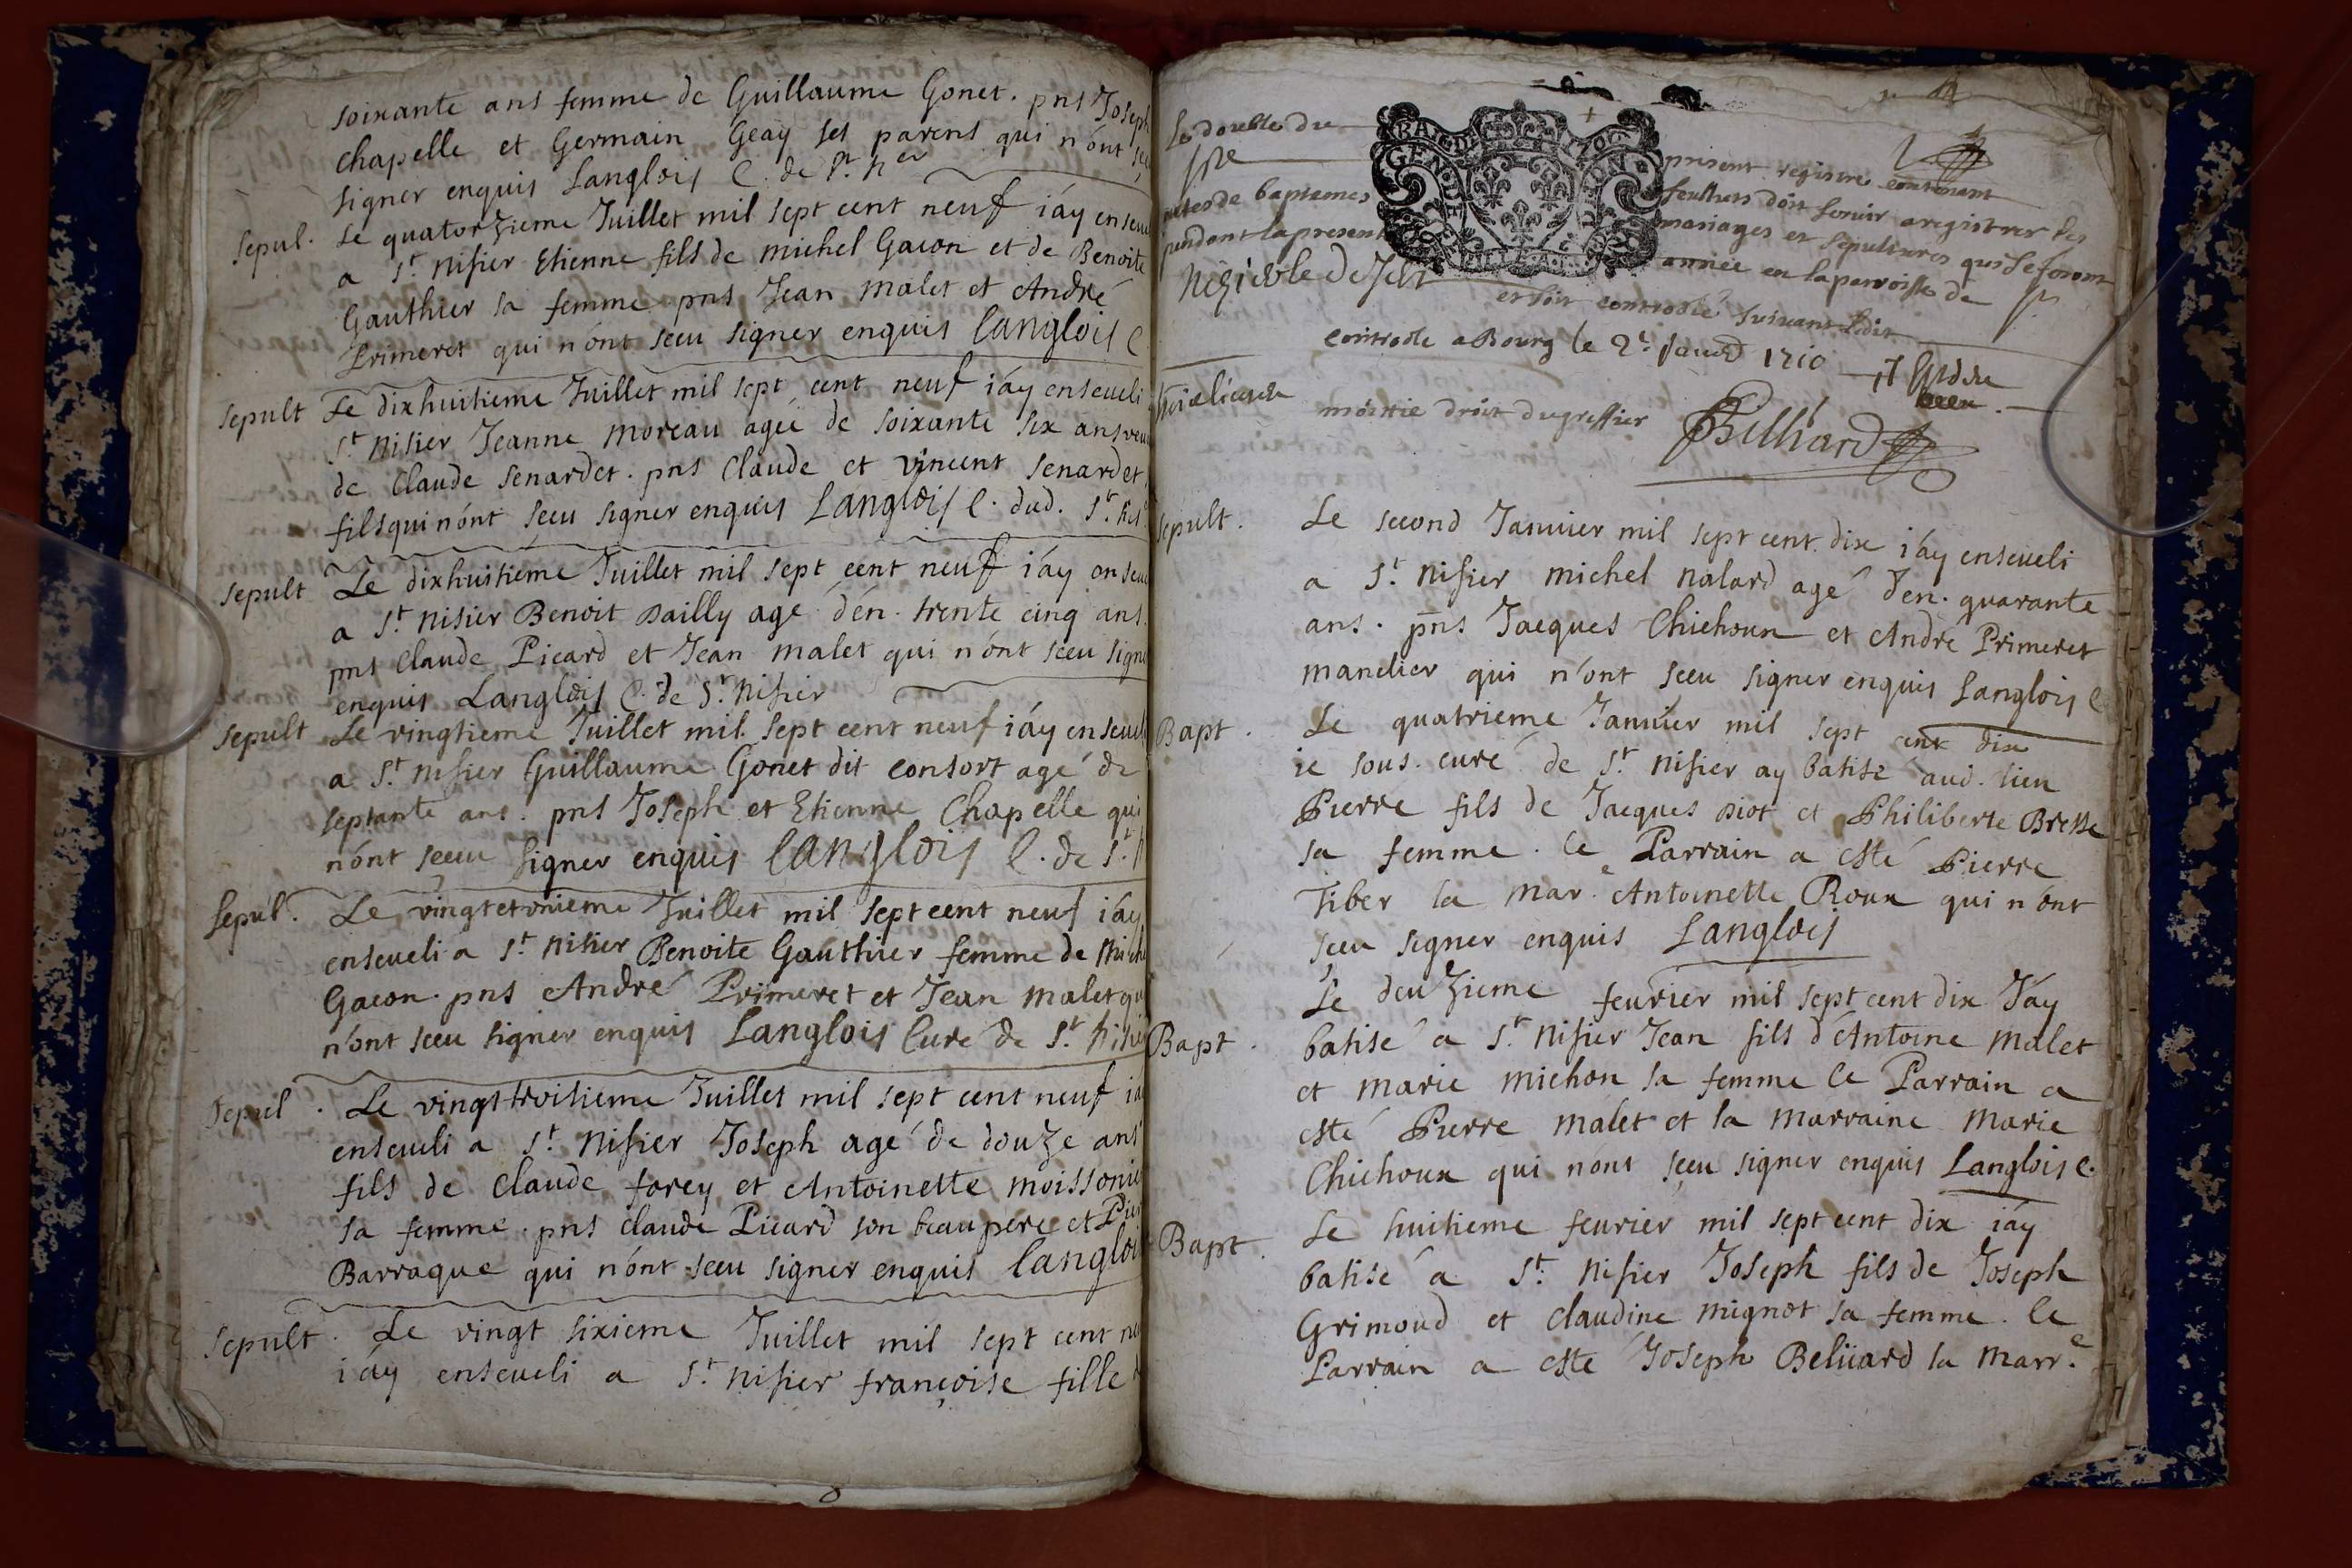 soixante ans femme de Guillaume Gonet. pns Joseph
chapelle et Germain Geay ses parens qui n'ont
signer enquis Langlois C. de St. Ner
Sepul. Le quatorzieme Juillet mil sept cent neuf i'ay enseve
a St. Nisier Etienne fils de michel Gacon et de Benoite
Gauthier sa femme pns Jean malet et André
Primeret qui n'ont sceu signer enquis Langlois C
Sepult Le dixhuitieme Juillet mil sept cent neuf i'ay enseveli
St. Nisier Jeanne moreau agée de soixante six ans veu
de Claude Senardet. pns Claude et Vincent Senardet
fils qui n'ont sceu signer enquis Langlois C. dud. St. Nis
Sepult Le dixhuitieme Juillet mil sept cent neuf i'ay enseve
a St. Nisier Benoit Dailly agé d'en. trente cinq ans.
pns Claude Picard et Jean malet qui n'ont sceu signe
enquis Langlois C. de St. Nisier
Sepult Le vingtieme Juillet mil sept cent neuf i'ay enseve
a St. Nisier Guillaume Gonet dit consort agé de
septante ans. pns Joseph et Etienne Chapelle qui
n'ont sceu signer enquis Langlois C. de St. N
Sepul. Le vingtetunieme Juillet mil sept cent neuf i'ay
enseveli a St. Nisier Benoite Gauthier femme de Mich
Gacon. pns André Primeret et Jean malet qu
n'ont sceu signer enquis Langlois Curé de St. Nisie
Sepul. Le vingttroisieme Juillet mil sept cent neuf ia
enseveli a St. Nisier Joseph agé de douze ans
fils de Claude forey et Antoinette moissonie
sa femme. pns claude Picard son beaupere et Pie
Barraque qui n'ont sceu signer enquis Langloi
Sepult. Le vingt sixieme Juillet mil sept cent ne
i'ay enseveli a St. Nisier françoise fille
Le double du present registre contenant
feullets doit servir a registrer les
actes de baptemes mariages et sepultures qui se feront
pendant la presente année en la paroisse de St.
Nisier le Desert
et soit controllé suivant l'edit
GEN. DE
controlle a Bourg le 2e. Janvr 1710
moittie droit du greffier Billiard
Sepult. Le second Januier mil sept cent dix i'ay enseveli
a St. Nisier michel Nalard agé d'en. quarante
ans. pns Jacques Chichoux et André Primeret
manelier qui n'ont sceu signer enquis Langlois C
Bapt. Le quatrieme Januier mil sept cent dix
ie sous. curé de St. Nisier ay batisé aud. lieu
Pierre fils de Jacques Diot et Philiberte Bresse
sa femme. le Parrain a esté Pierre
Tiber la mar.e Antoinette Roux qui n'ont
sceu signer enquis Langlois
Le deuzieme feurier mil sept cent dix J'ay
Bapt. batisé a St. Nisier Jean fils d'Antoine malet
et marie michon sa femme le Parrain a
esté Pierre malet et la marraine marie
Chichoux qui nont sceu signer enquis Langlois C.
Bapt. Le huitieme feurier mil sept cent dix i'ay
batisé a St. Nisier Joseph fils de Joseph
Grimoud et claudine mignot sa femme. le
Parrain a esté Joseph Belüard la marr.e